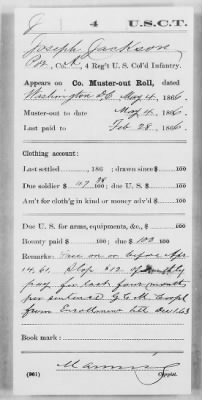 J 4 U.S.C.T.
Joseph Jackson
Co. K, 4 Reg't U. S. Col'd Infantry.
Appears on Co. Muster-out Roll, dated
Washington D.C. May 4, 1866.
Muster-out to date May 4, 1866.
Last paid to Feb 28, 1866.
Clothing account:
Last settled, 186 ; drawn since $ 100
Due soldier $ 100; due U. S. $ 100
Am't for cloth'g in kind or money adv'd $ 100
Due U. S. for arms, equipments, &c., $ 100
Bounty paid $ 100; due $ 100 100
Remarks: Free on or before Apr
14, 61. Stop $12 of monthly
pay for last four months
per sentence G.C.M. Corpl
from Enrollment till Dec 1.63
Book mark:
(861) Copyist.